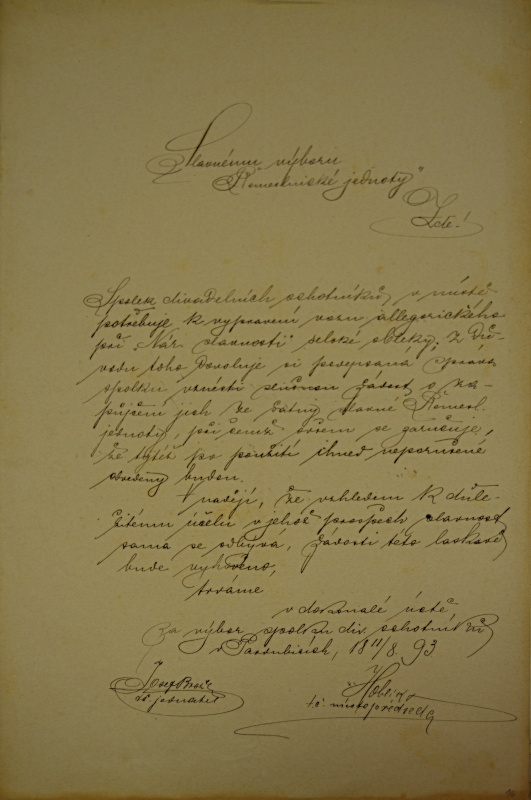 Slavnému výboru
"Řemeslnické jednoty"
Zde!
Spolek divadelních ochotníků v místě
potřebuje k vypravení vozu allegorického
při "Nár. slavnosti" selské obleky. Z dů-
vodu toho dovoluje si podepsaná správa
spolku vznésti slušnou žádost o za-
půjčení jich ze šatny slavné Řemesl.
jednoty, při čemž ovšem se zaručuje,
že tytéž po použití ihned neporušené
odvedeny budou.
V naději, že vzhledem k důle-
žitému účelu v jehož prospěch slavnost
sama se odbývá, žádosti této laskavě
bude vyhověno,
trváme
v dokonalé úctě
Za výbor spolku div. ochotníků
v Pardubicích, 18 11/8 93
Josef
t.č. jednatel
t.č. místopředseda